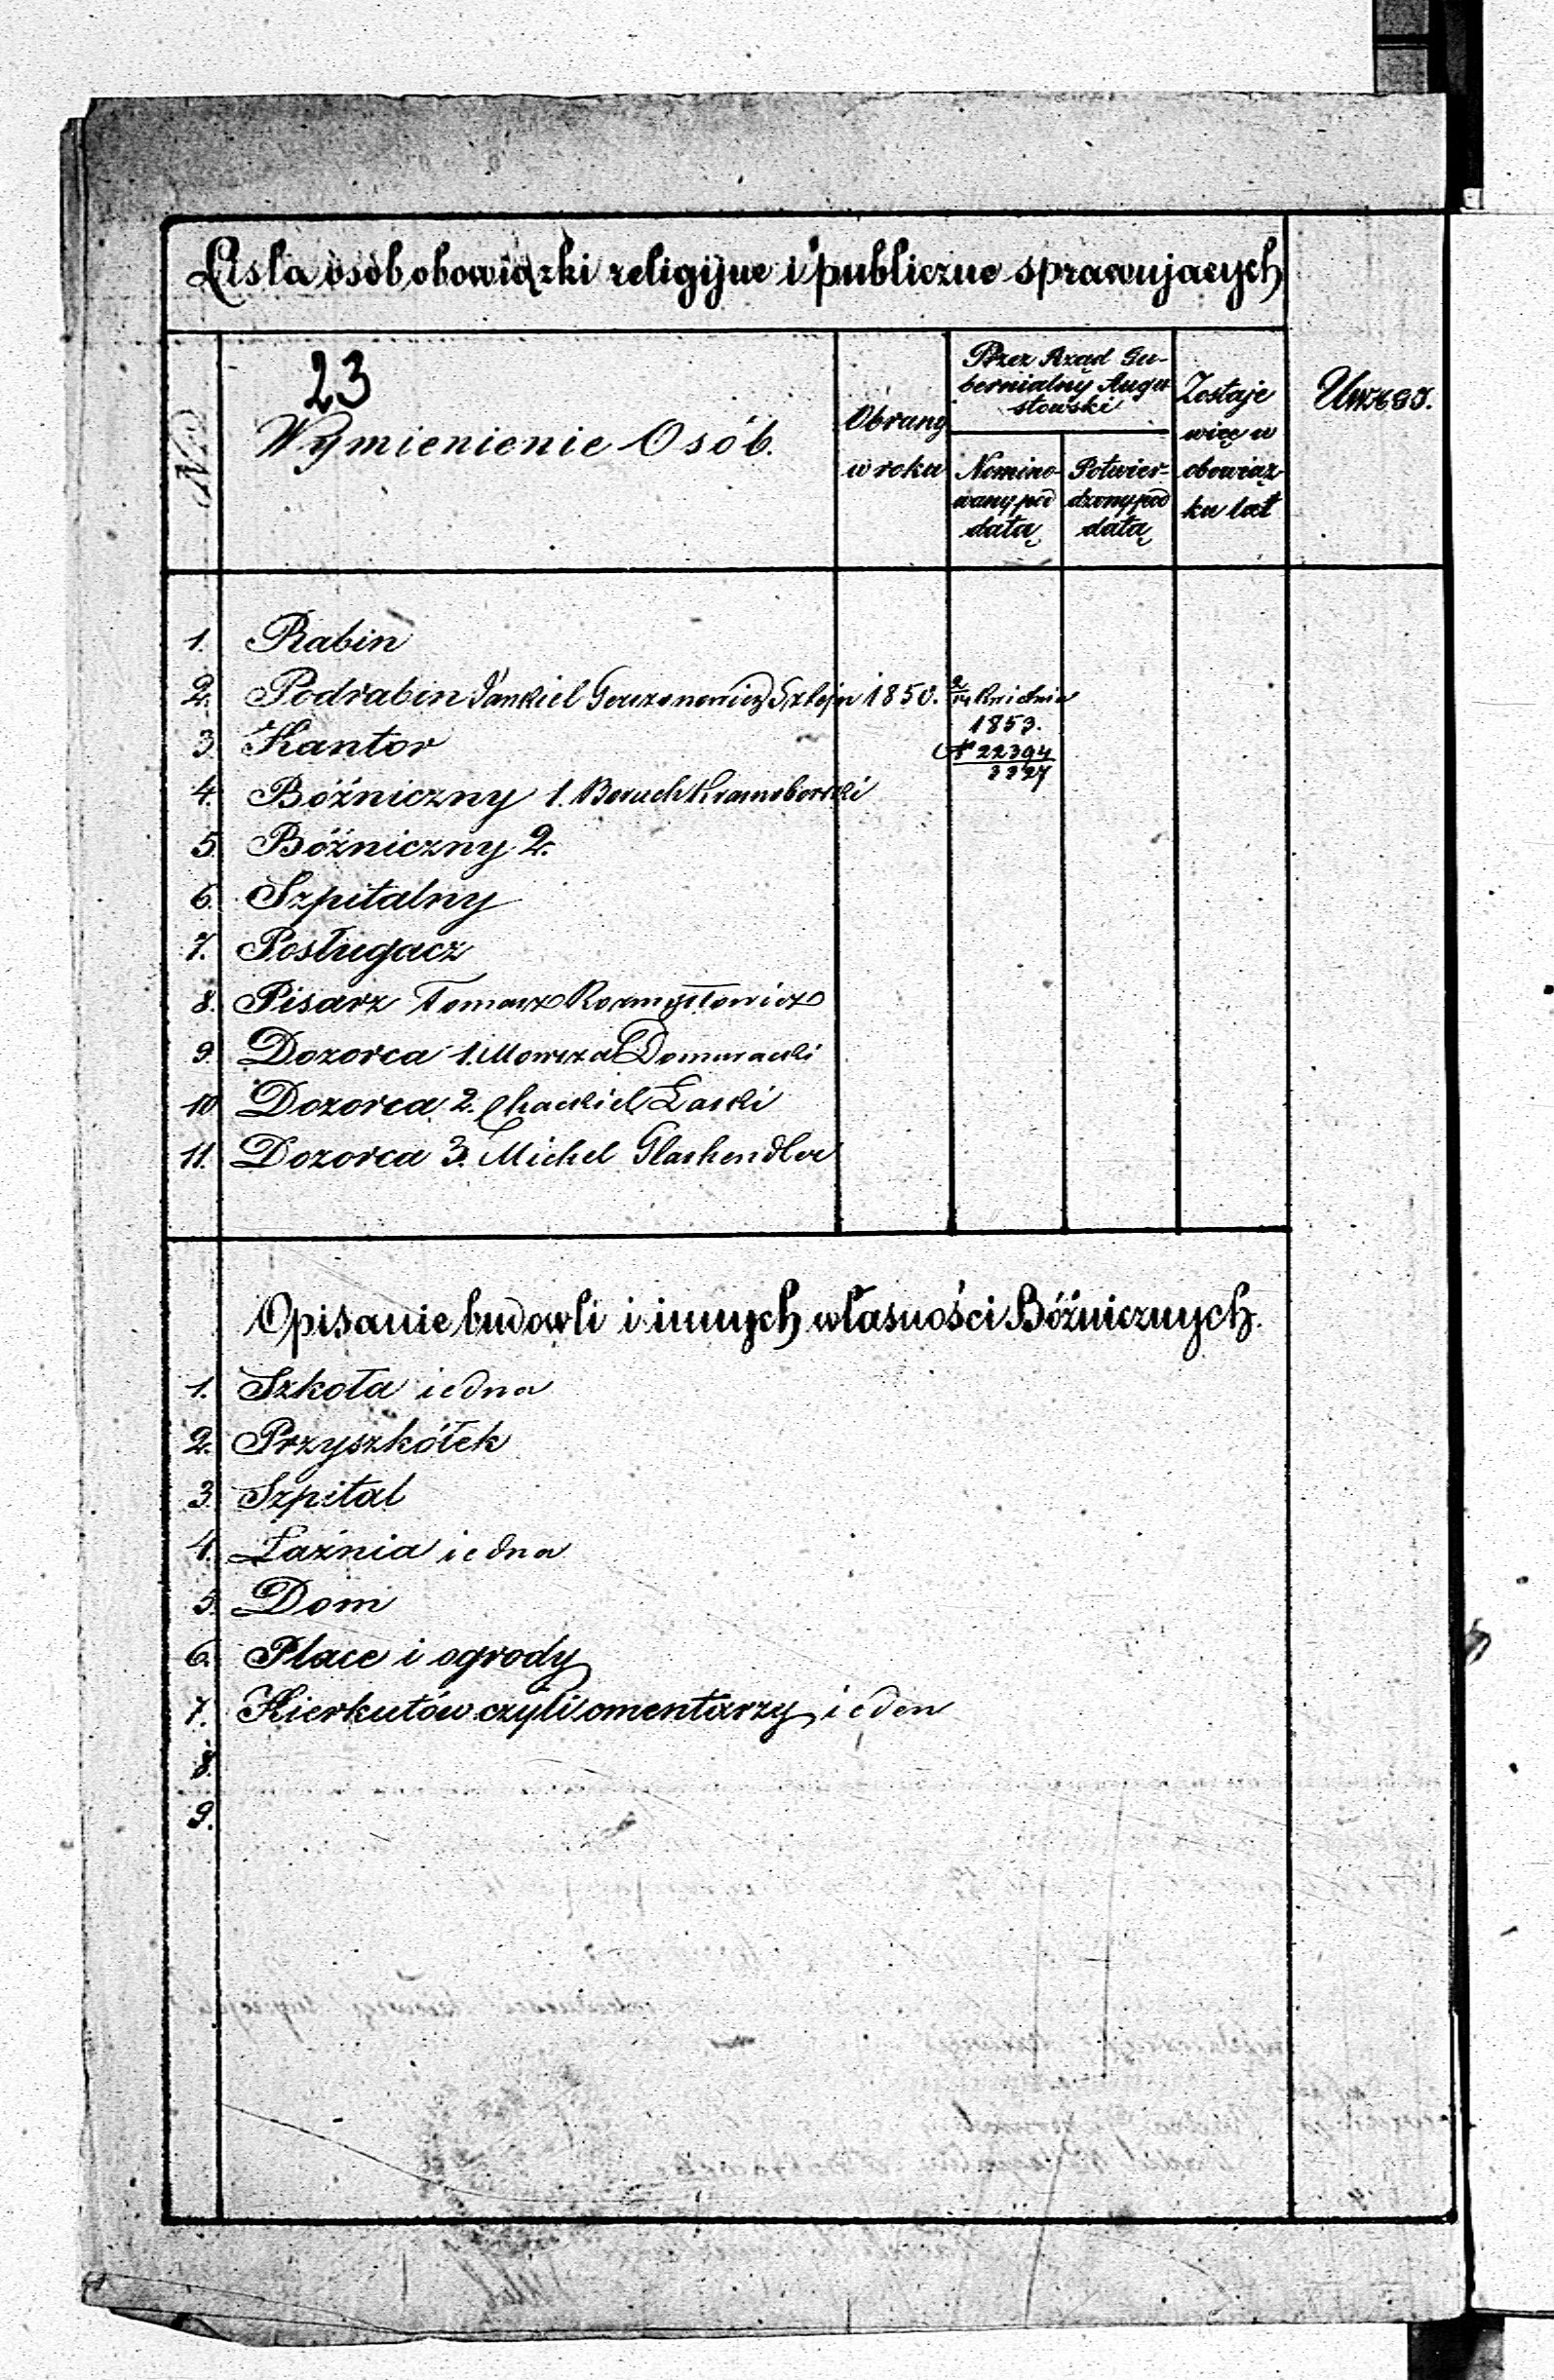 Lista osób obowiązki religijne i publiczne sprawujących
23
No
Wymienienie Osób.
Obrany
w roku
Przez Rząd Gu-
bernialny Augu
stowski
Nomino-
wany pod
datą
Potwier-
dzony pod
datą
Zostaje
więc w
obowiąz-
ku lat
1. Rabin
2. Podrabin Jankiel Gerszonowicz 1850. 2/14 Kwietnia
1853.
No 22394
3327
3. Kantor
4. Bóźniczny 1. Boruch Krasnoborski
5. Bóźniczny 2.
6. Szpitalny
7. Posługacz
8. Pisarz Tomasz Rozmysłowicz
9. Dozorca 1. Mowsza Domuracki
10. Dozorca 2. Chackiel Łaski
11. Dozorca 3. Michel Glashendler
Opisanie budowli i innych własności Bóźnicznych.
1. Szkoła iedna
2. Przyszkółek
3. Szpital
4. Łaźnia iedna
5. Dom
6. Place i ogrody
7. Kierkutów czyli omentarzy ieden
8.
9.